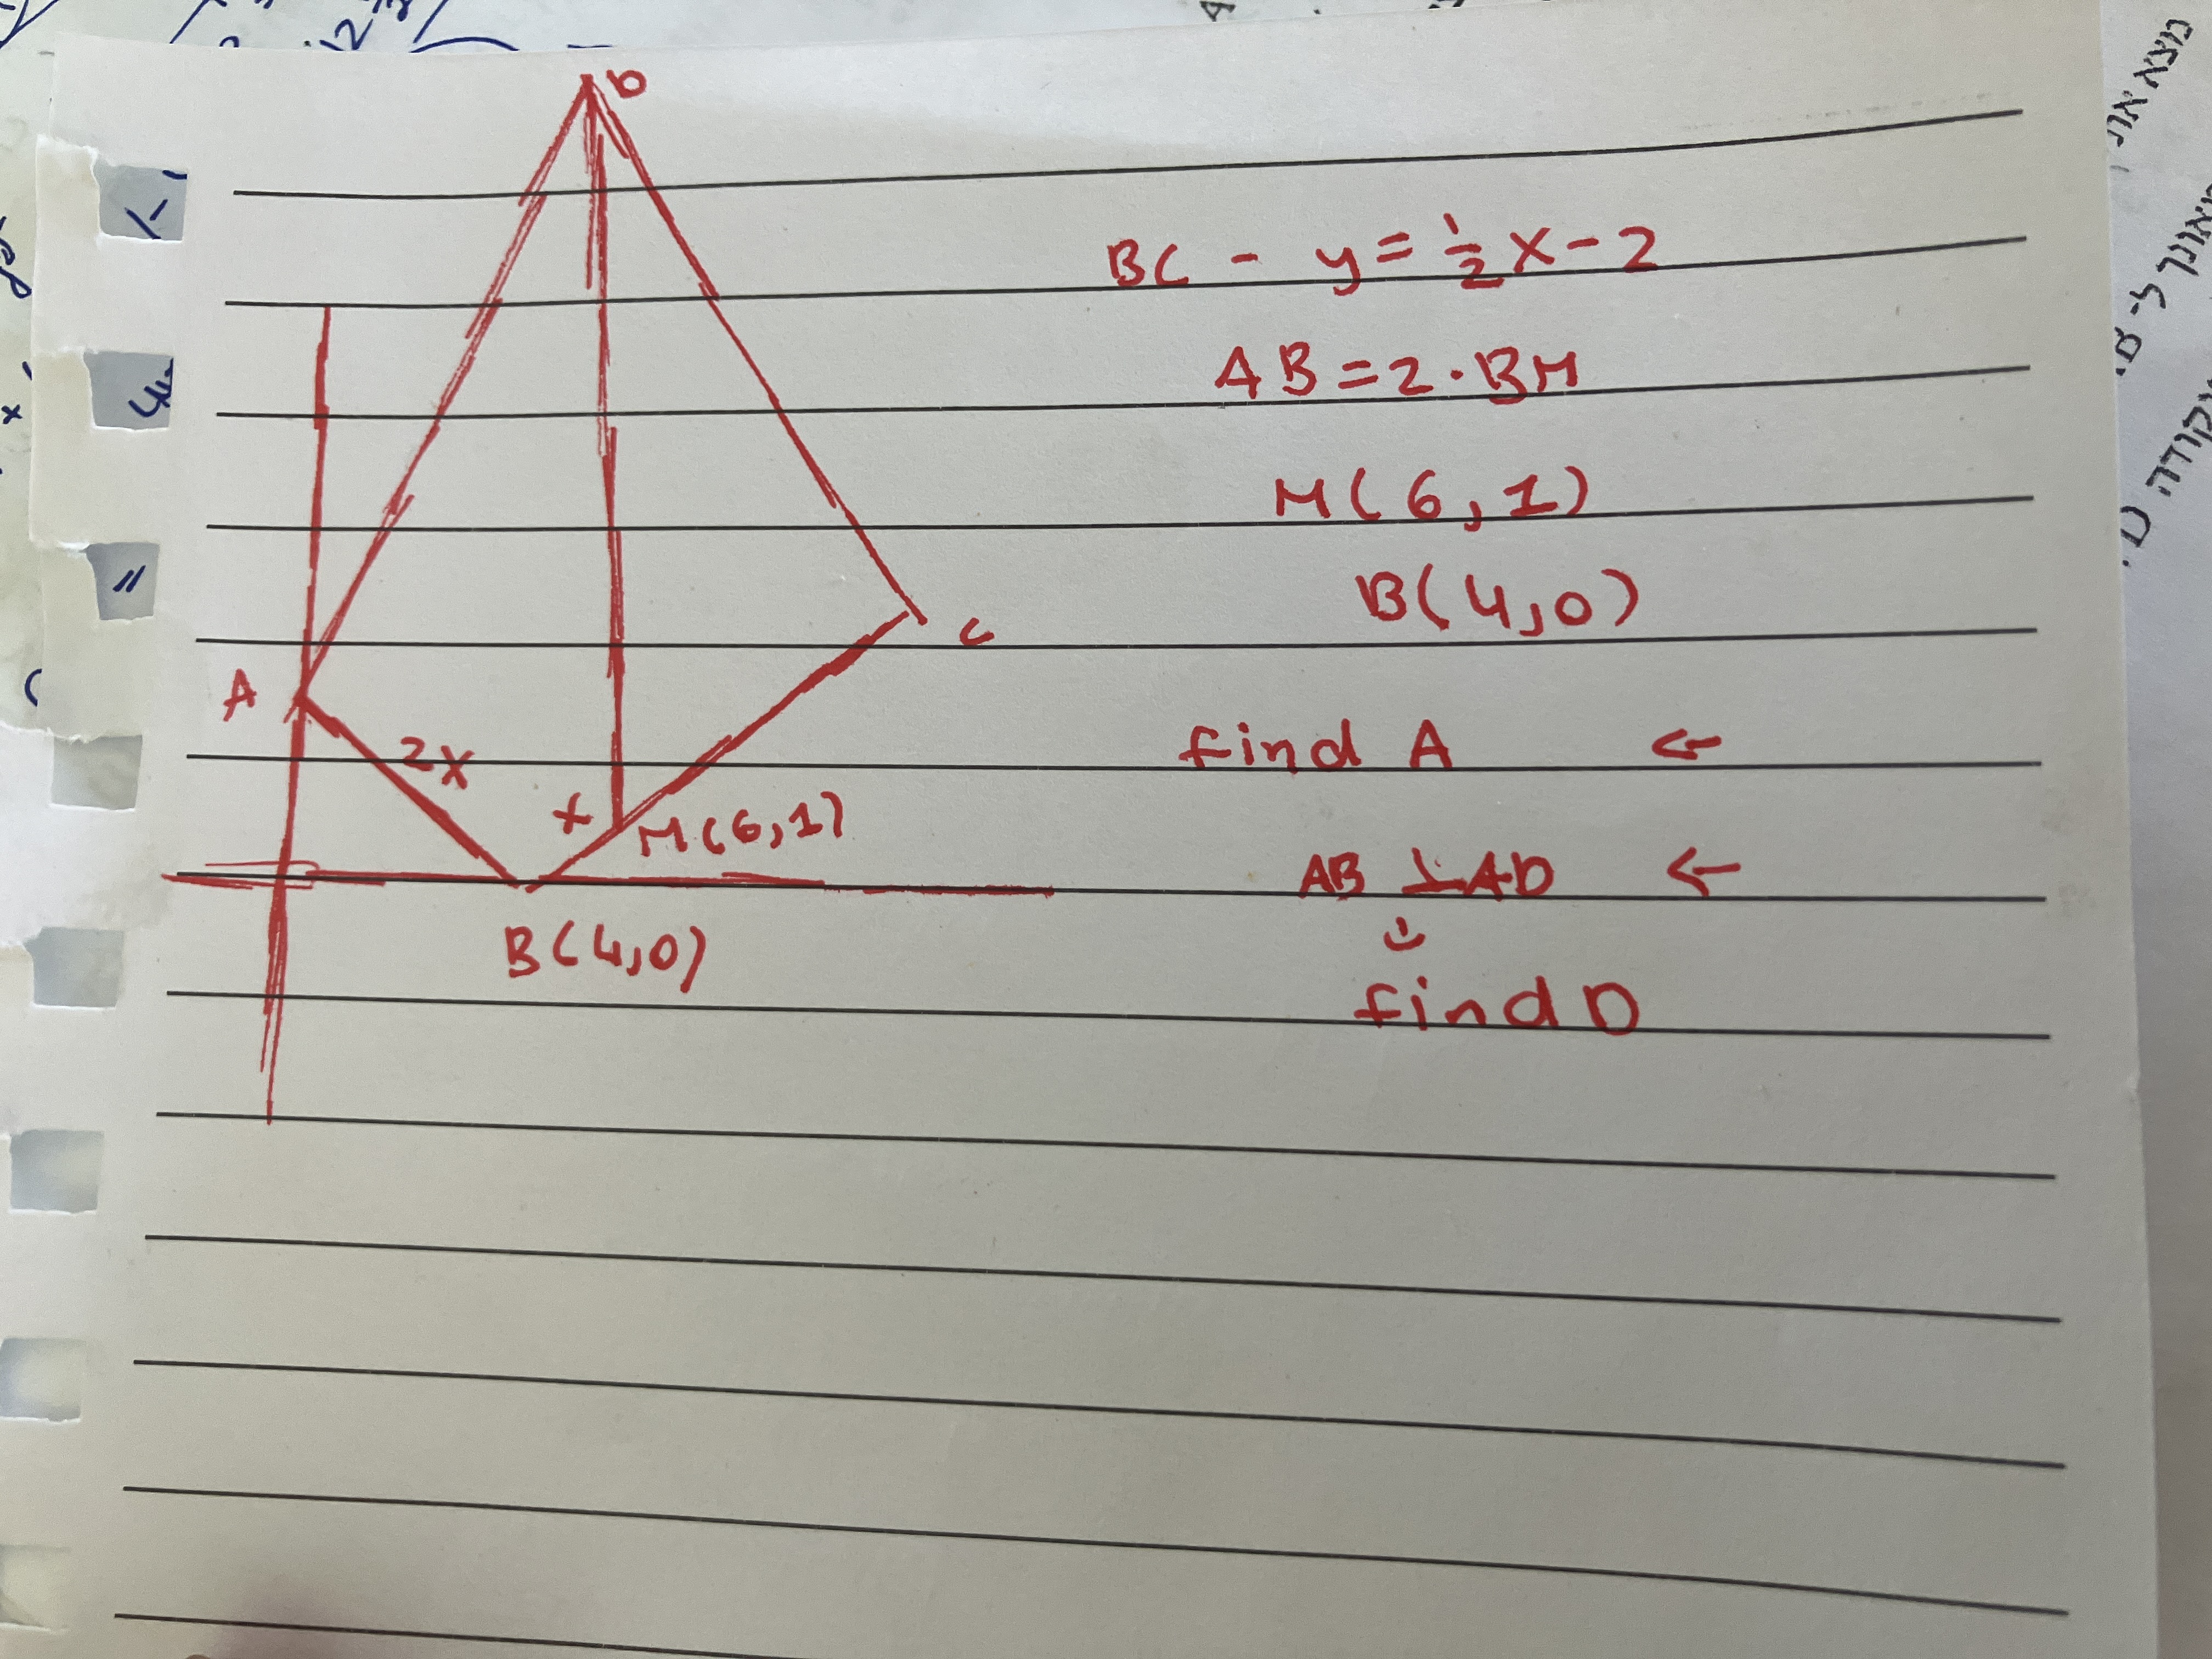 D
A
2x
x
C
M(6,1)
B(4,0)
BC - y=½x-2
AB=2·BM
M(6,1)
B(4,0)
find A ←
AB ⊥ AD ←
find D
מצא את
מאונך ל- B.
נקודה D.